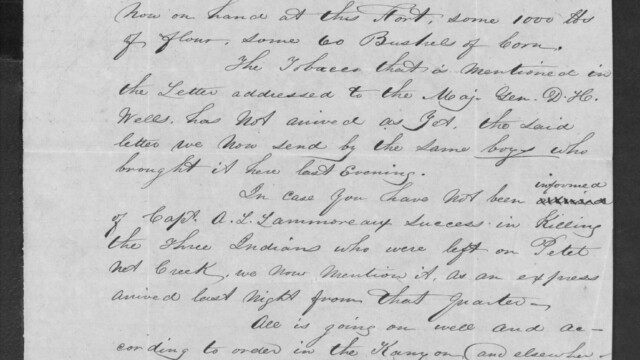 Now on hand at this Fort, some 1000 lbs
of flour, some 60 Bushels of Corn.
The Tobacco that is Mentioned in
the Letter addressed to the Maj. Gen. D. H.
Wells, has Not arived as Yet, the said
letter we Now send by the same boys who
brought it here last Evening.
In case You have Not been informed
of Capt. A. L. Lammoreaux success in Killing
the Three Indians who were left on Petet
not Creek, we now Mention it, as an express
arived last Night from that Quarter—
All is going on well and ac-
cording to order in the Kanyon (and elsewher